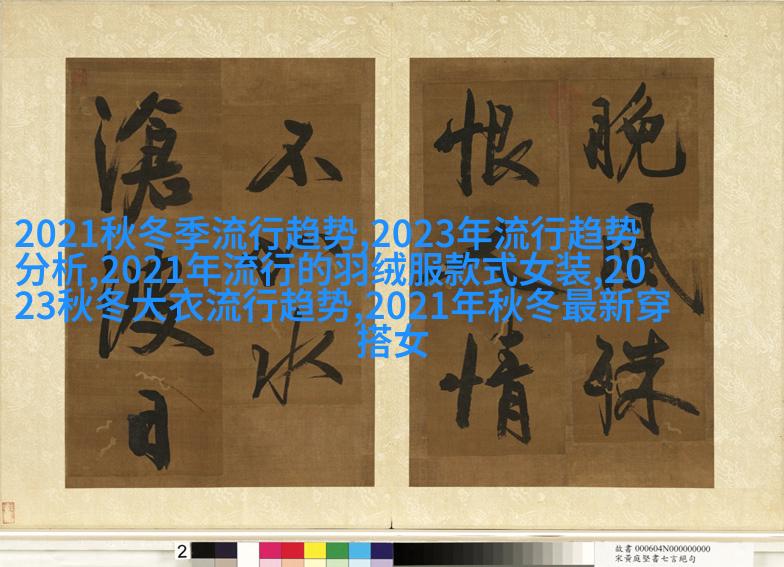 晚風殊
恨 情
不 水
滄 日
2021秋冬季流行趋势,2023年流行趋势
分析,2021年流行的羽绒服款式女装,20
23秋冬大衣流行趋势,2021年秋冬最新穿
搭女
2
故書 000604N000000000
宋黃庭堅書七言絕句